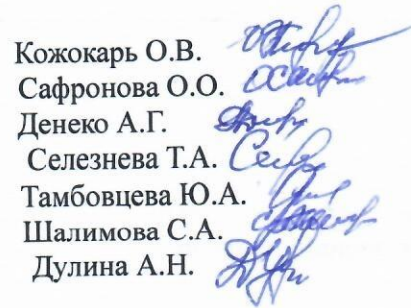 Кожокарь О.В.
Сафронова О.О.
Денеко А.Г.
Селезнева Т.А.
Тамбовцева Ю.А.
Шалимова С.А.
Дулина А.Н.